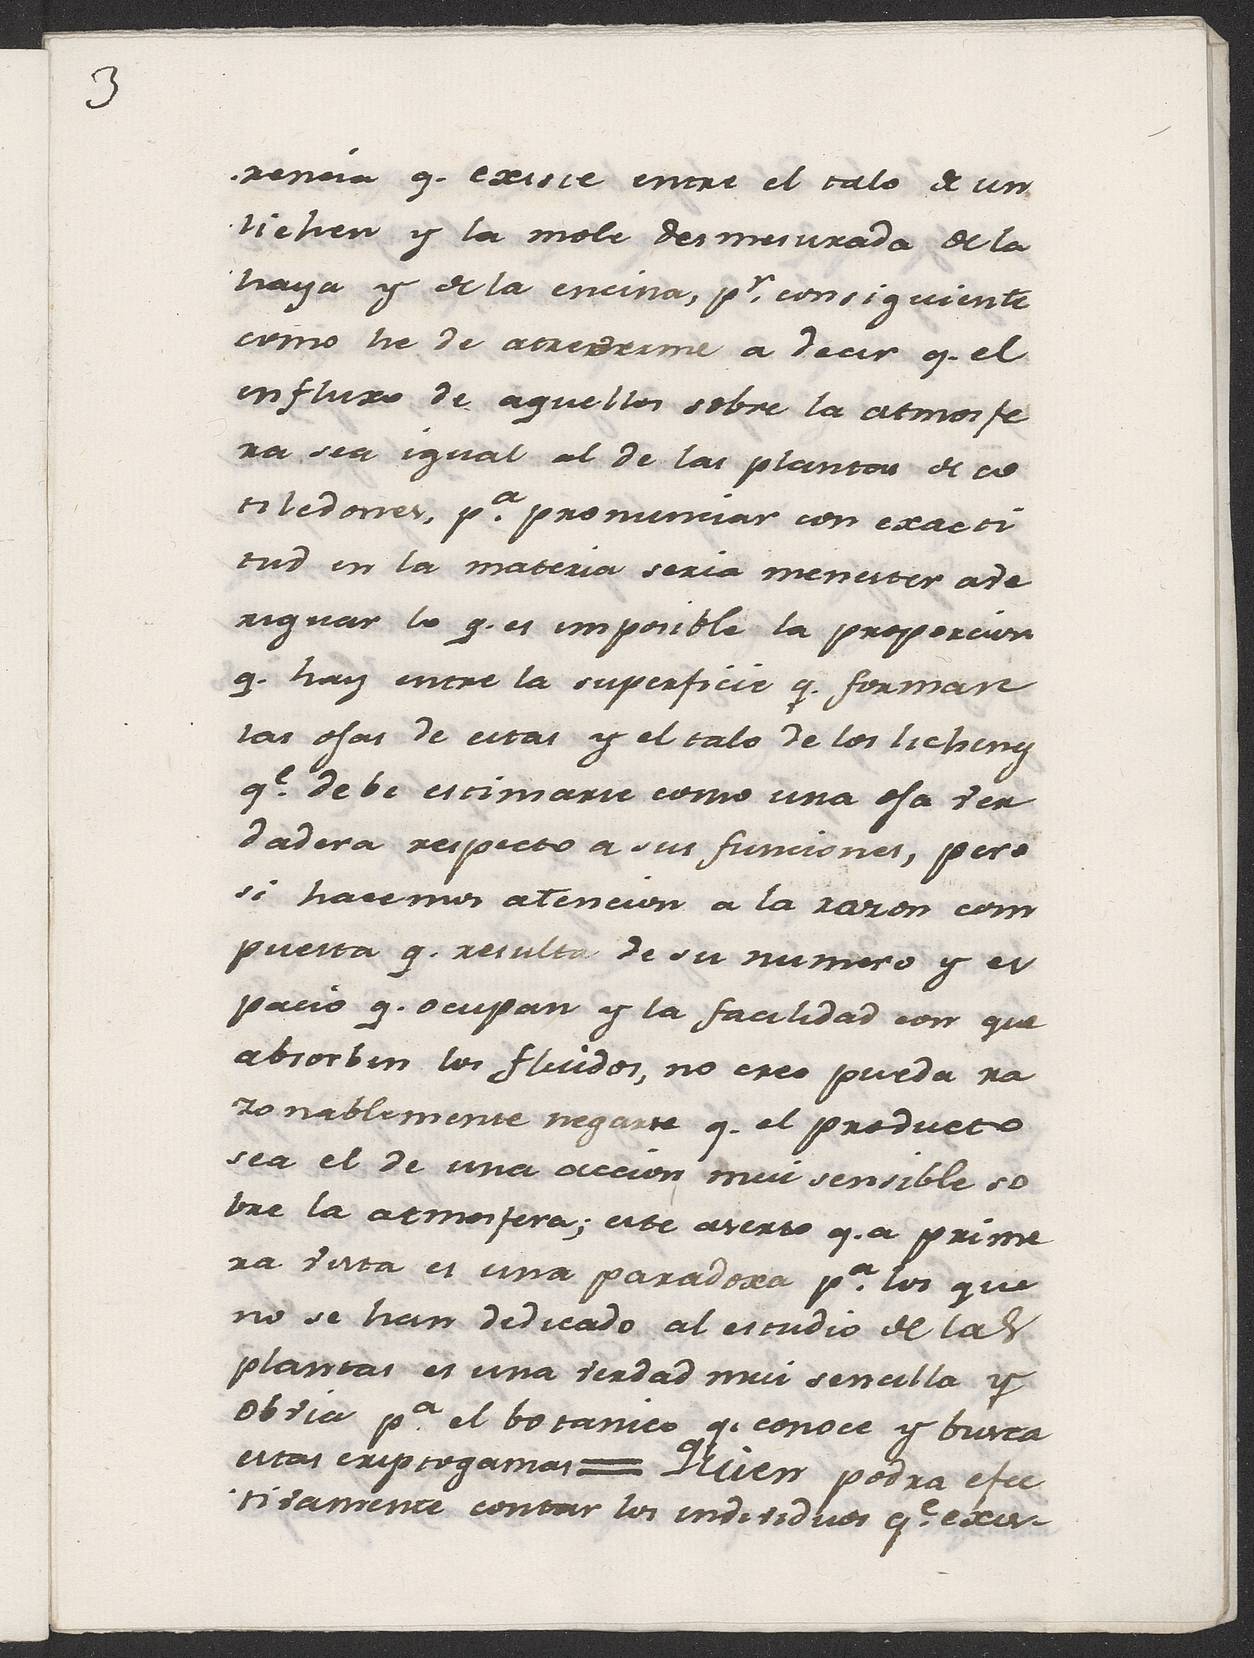 3
rencia q. existe entre el talo de un
lichen y la mole desmesurada de la
haya y de la encina, pr. consiguiente
como he de atreverme a decir q. el
influxo de aquellos sobre la atmosfe
ra sea igual al de las plantas de co
tiledones, pa. pronunciar con exacti
tud en la materia seria menester ave
riguar lo q. es imposible la proporcion
q. hay entre la superficie q. forman
las ojas de estas y el talo de los lichens
qe. debe estimarse como una oja ver
dadera respecto a sus funciones, pero
si hacemos atencion a la razon com
puesta q. resulta de su numero y es
pacio q. ocupan y la facilidad con que
absorben los fluidos, no creo pueda ra
zonablemente negarse q. el producto
sea el de una accion mui sensible so
bre la atmosfera; este aserto q. a prime
ra vista es una paradoxa pa. los que
no se han dedicado al estudio de las
plantas es una verdad mui sencilla y
obvia pa. el botanico q. conoce y busca
estas criptogamas = Quien podra efec
tivamente contar los individuos qe. exis-